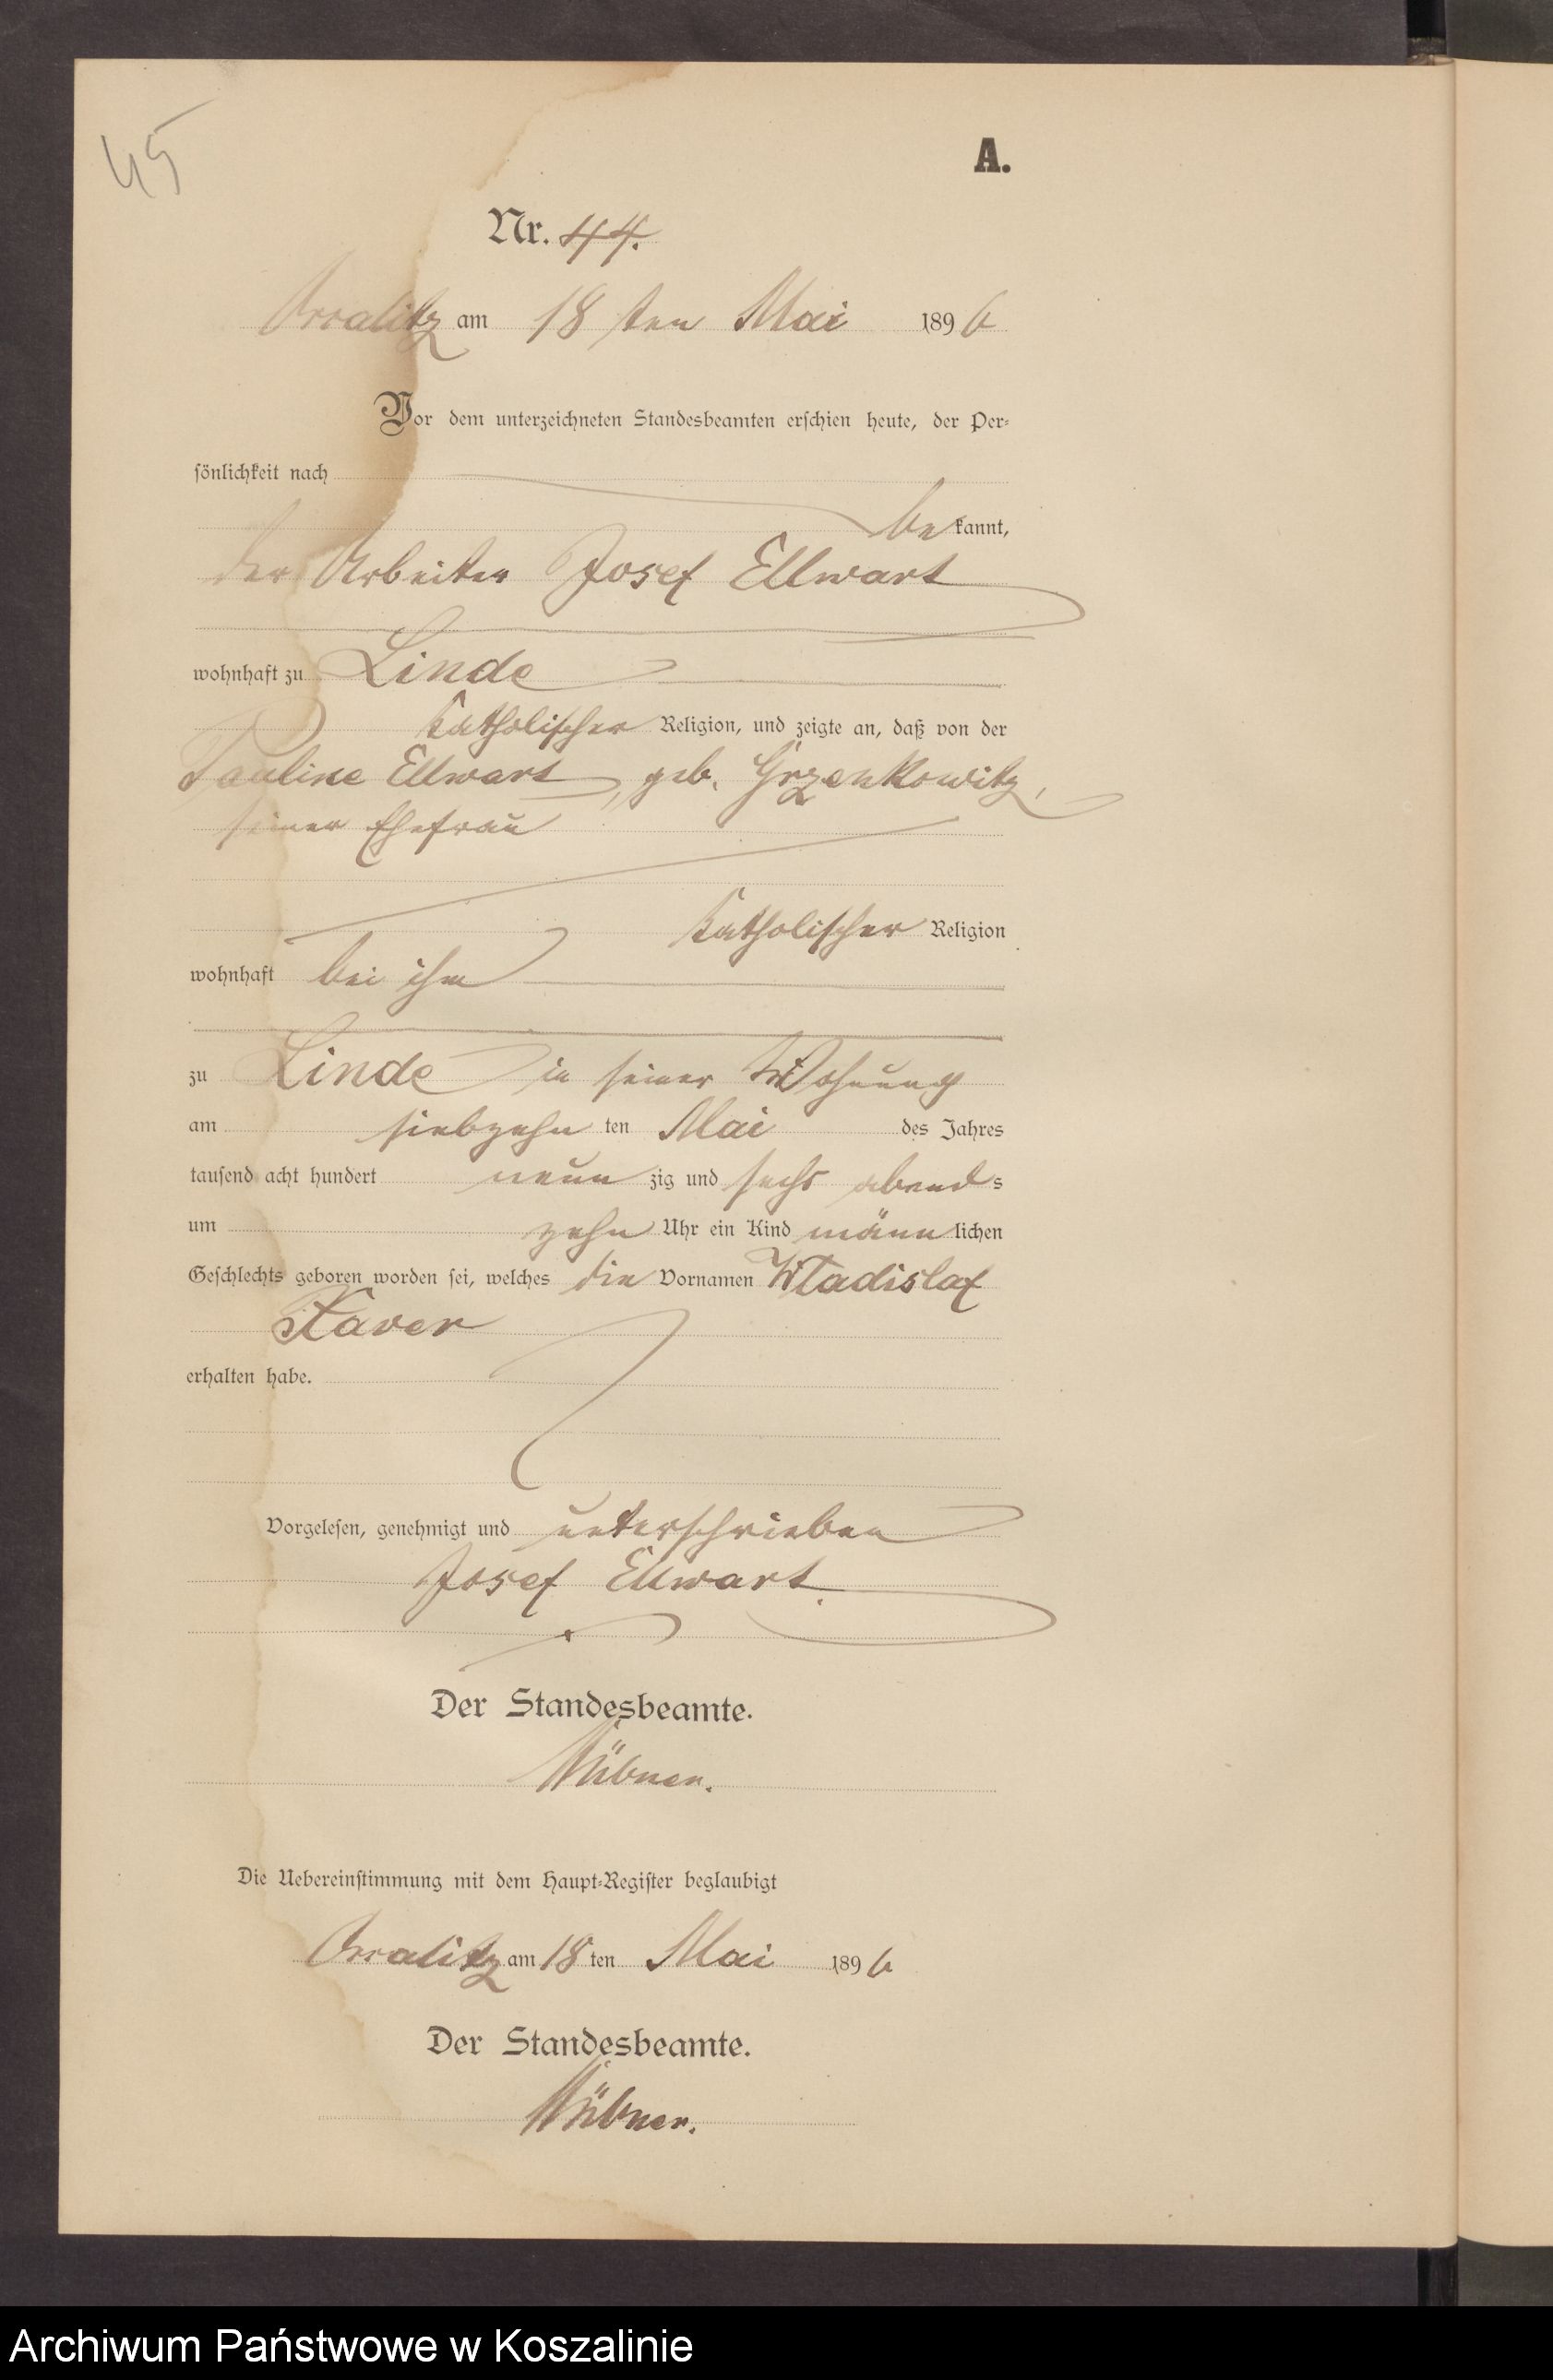 45
A.
Nr. 44.
Occalitz am 18 ten Mai 1896
Vor dem unterzeichneten Standesbeamten erschien heute, der Per-
sönlichkeit nach
bekannt,
der Arbeiter Josef Ellwart
wohnhaft zu Linde
katholischer Religion, und zeigte an, daß von der
Pauline Ellwart, geb. Grzenkowitz,
seiner Ehefrau
katholischer Religion
wohnhaft bei ihm
zu Linde in seiner Wohnung
am siebzehn ten Mai des Jahres
tausend acht hundert neun zig und sechs abends
um zehn Uhr ein Kind männlichen
Geschlechts geboren worden sei, welches die Vornamen Wladislaf
Xaver
erhalten habe.
Vorgelesen, genehmigt und unterschrieben
Josef Ellwart.
Der Standesbeamte.
Die Uebereinstimmung mit dem Haupt-Register beglaubigt
Occalitz am 18 ten Mai 1896
Der Standesbeamte.
Archiwum Państwowe w Koszalinie